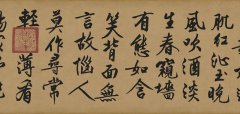 肌紅沁玉晚
風吹酒淡
生春窺墻
有態如含
笑背面無
言故惱人
莫作尋常
輕薄看